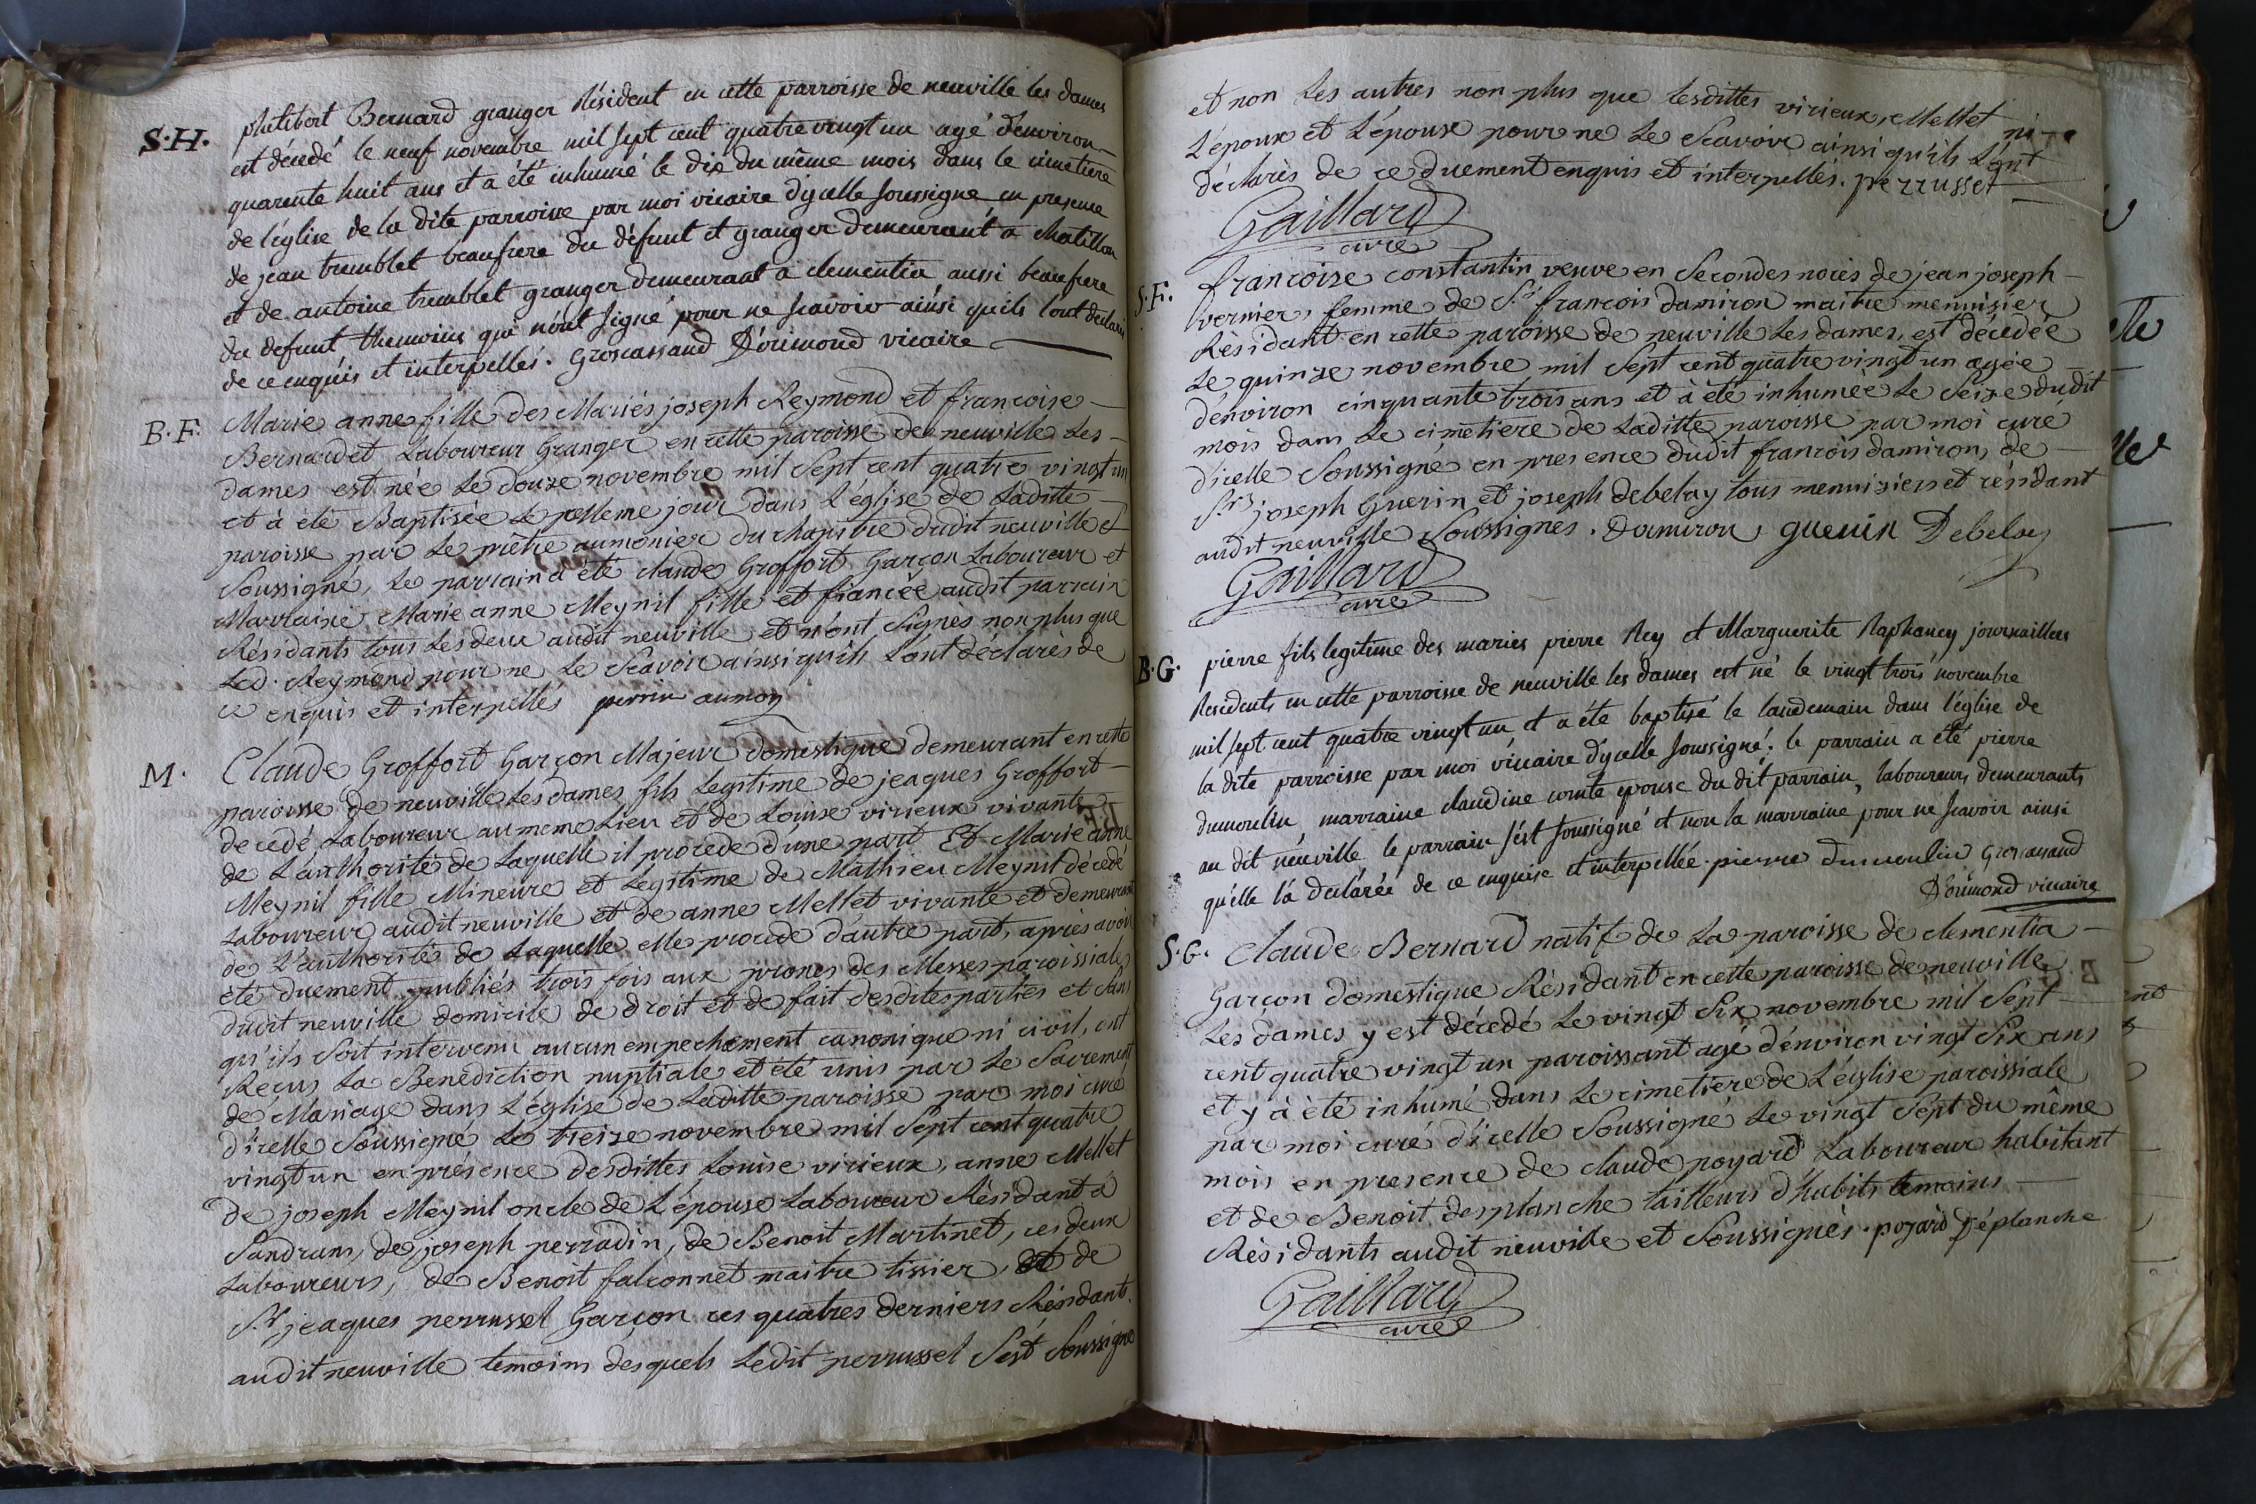 S.H. philibert Bernard granger Résident en cette parroisse de neuville les dames
est décedé le neuf novembre mil sept cent quatre vingt un agé d'environ
quarente huit ans et a été inhumé le dix du même mois dans le cimetiere
de l'église de la dite parroisse par moi vicaire d'ycelle soussigné en presence
de jean tremblet beaufrere du défunt et granger demeurant a chatillon
et de antoine tremblet granger demeurant a clementia aussi beaufrere
du defunt themoins qui n'ont signé pour ne scavoir ainsi qu'ils l'ont declaré
de ce enquis et interpellés. Groscassand Dorimond vicaire
B.F. Marie anne fille des Mariés joseph Reymond et francoise
Bernardet Laboureur Granger en cette paroisse de neuville Les
dames est née Le douze novembre mil Sept cent quatre vingt un
et à été Baptisée Le meme jour dans L'église de Laditte
paroisse par Le prêtre aumônier du chapitre dudit neuville
Soussigné, Le parrain a été claude Groffort Garçon Laboureur et
Marraine Marie anne Meynil fille et fiancée audit parrain
Résidants tous Les deux audit neuville et n'ont Signés non plus que
Led. Reymond pour ne Le Scavoir ainsi qu'ils L'ont déclarès de
ce enquis et interpellés perrin aumon
M. Claude Groffort Garçon Majeur domestique demeurant en cette
paroisse de neuville Les dames fils Legitime de jeaques Groffort
decedé Laboureur au meme Lieu et de Louise virieux vivante
de L'authorité de Laquelle il procede d'une part Et Marie anne
Meynil fille Mineure et Legitime de Mathieu Meynil décedé
Laboureur audit neuville et de anne Mellet vivante et demeurant
de L'authorité de Laquelle elle procede d'autre part, après avoir
été duement publiés trois fois aux prones des Messes paroissiales
dudit neuville domicile de droit et de fait desdites parties et Sans
qu'ils Soit intervenu aucun empechement canonique ni civil, ont
Reçus La Benediction nuptiale et été unis par Le Sacrement
de Mariage dans L'église de Laditte paroisse par moi curé
d'icelle Soussigné Le treize novembre mil Sept cent quatre
vingt un en présence desdittes Louise virieux, anne Mellet
de joseph Meynil oncle de L'épouse Laboureur Résidant à
Sandrans, de joseph perradin, de Benoit Martinet, ces deux
Laboureurs, de Benoit falconnet maitre tissier, et de
Sr. jeaques perrussel Garçon ces quatres derniers Résidants
audit neuville temoins desquels Ledit perrussel S'est Soussigné
et non Les autres non plus que lesdittes virieux, Mellet ni
L'époux et L'épouse pour ne Le Scavoir ainsi qu'ils L'ont
déclarès de ce duement enquis et interpellés. perrussel
Gaillard
curé
S.F. francoise constantin veuve en Secondes noces de jean joseph
vernier, femme de Sr. francois damiron maitre menuisier
Résidant en cette paroisse de neuville Les dames, est décedée
Le quinze novembre mil Sept cent quatre vingt un agée
d'environ cinquante trois ans et à été inhumée Le Seize dudit
mois dans Le cimetiere de Laditte paroisse par moi curé
d'icelle Soussigné en presence dudit francois damiron, de
Srs. joseph Guerin et joseph debelay tous menuisiers et résidant
audit neuville Soussignés. Damiron guerin Debelay
Gaillard
curé
B.G. pierre fils legitime des mariés pierre Rey et Marguerite Raphaney journailliers
Residents en cette parroisse de neuville les dames est né le vingt trois novembre
mil sept cent quatre vingt un et a été baptisé le landemain dans l'église de
la dite parroisse par moi vicaire d'ycelle soussigné. le parrain a été pierre
dumoulin marraine claudine comte epouse du dit parrain, laboureurs demeurants
au dit néuville le parrain s'est soussigné et non la marraine pour ne scavoir ainsi
qu'elle l'a declarée de ce enquise et interpellée. pierre dumoulin Groscassand
Dorimond vicaire
S.G. Claude Bernard natif de La paroisse de clementia
Garçon domestique Résidant en cette paroisse de neuville
Les dames y est décedé Le vingt Six novembre mil Sept
cent quatre vingt un paroissant agé d'environ vingt Six ans
et y à èté inhumé dans Le cimetiere de L'église paroissiale
par moi curé d'icelle Soussigné Le vingt Sept du même
mois en presence de claude poyard Laboureur habitant
et de Benoit desplanche tailleurs d'habits temoins
Résidants audit neuville et Soussignés. poyard Déplanche
Gaillard
curé